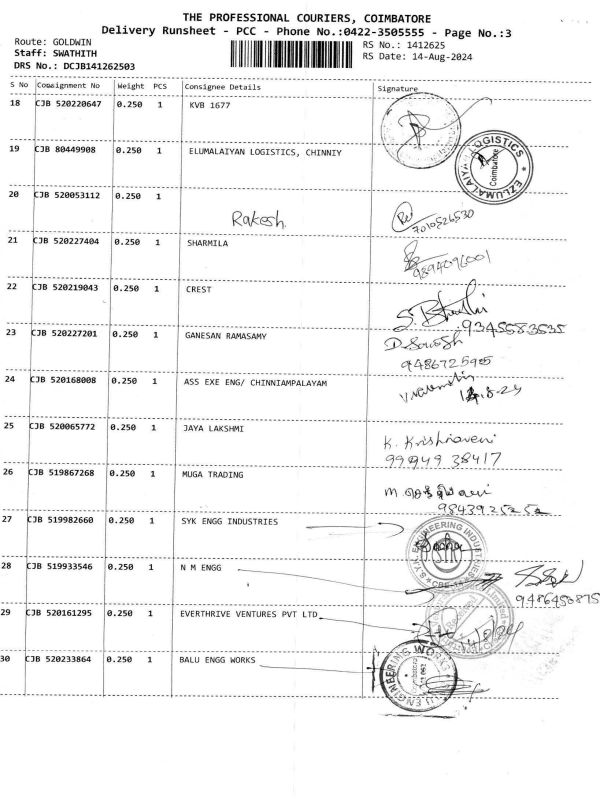 THE PROFESSIONAL COURIERS, COIMBATORE
Delivery Runsheet - PCC - Phone No.:0422-3505555 - Page No.:3
Route: GOLDWIN
RS No.: 1412625
Staff: SWATHITH
RS Date: 14-Aug-2024
DRS No.: DCJB141262503
S No Consignment No Weight PCS Consignee Details Signature
18 CJB 520220647 0.250 1 KVB 1677
19 CJB 80449908 0.250 1 ELUMALAIYAN LOGISTICS, CHINNIY
LOGISTICS
Coimbatore
20 CJB 520053112 0.250 1
Rakesh.
7010526530
21 CJB 520227404 0.250 1 SHARMILA
9894096001
22 CJB 520219043 0.250 1 CREST
23 CJB 520227201 0.250 1 GANESAN RAMASAMY
24 CJB 520168008 0.250 1 ASS EXE ENG/ CHINNIAMPALAYAM
25 CJB 520065772 0.250 1 JAYA LAKSHMI
K. Krishnaveni
99949 38417
26 CJB 519867268 0.250 1 MUGA TRADING
27 CJB 519982660 0.250 1 SYK ENGG INDUSTRIES
ENGINEERING INDUSTRIES
28 CJB 519933546 0.250 1 N M ENGG
29 CJB 520161295 0.250 1 EVERTHRIVE VENTURES PVT LTD
30 CJB 520233864 0.250 1 BALU ENGG WORKS
ENGINEERING WORKS